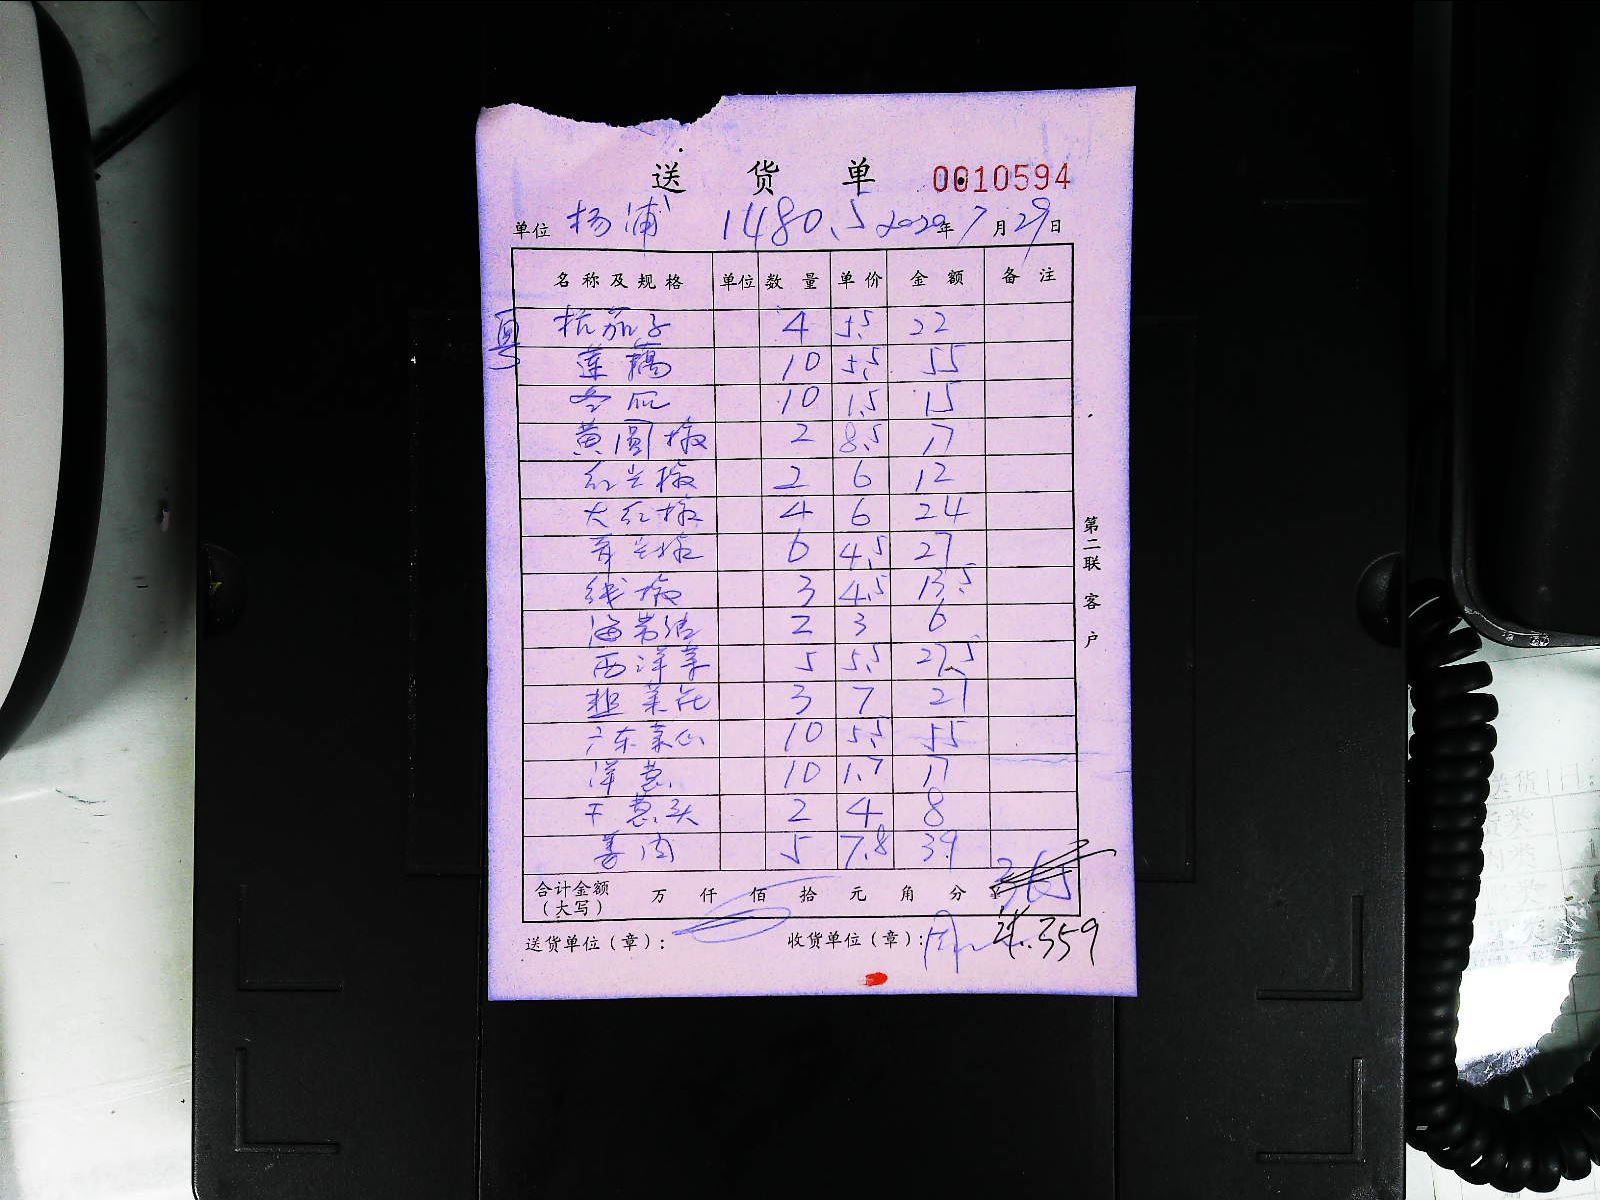 送 货 单 0010594
单位 杨浦 1480.5 2020年7月29日
名称及规格 单位 数量 单价 金额 备注
杭茄子 4 5.5 22
粤
莲藕 10 5.5 55
冬瓜 10 1.5 15
黄圆椒 2 8.5 17
红尖椒 2 6 12
大红椒 4 6 24
青尖椒 6 4.5 27
线椒 3 4.5 13.5
海带结 2 3 6
西洋菜 5 5.5 27.5
韭菜花 3 7 21
广东菜心 10 5.5 55
洋葱 10 1.7 17
干葱头 2 4 8
姜肉 5 7.8 39
合计金额（大写） 万 仟 佰 拾 元 角 分 ¥
送货单位（章）： 收货单位（章）： 359
第二联 客户
送货日：